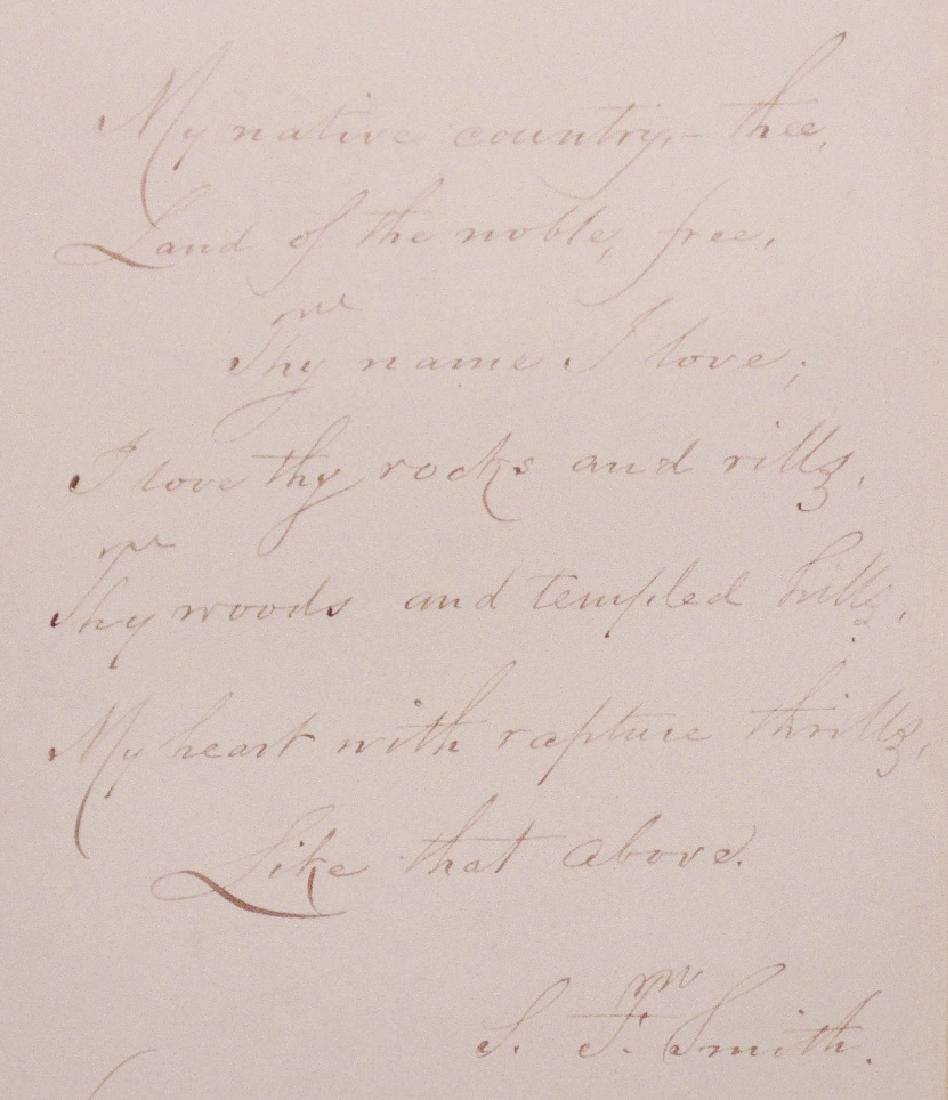 My native country,– thee,
Land of the noble, free,
Thy name I love;
I love thy rocks and rills,
Thy woods and templed hills,
My heart with rapture thrills,
Like that above.
S. F. Smith.